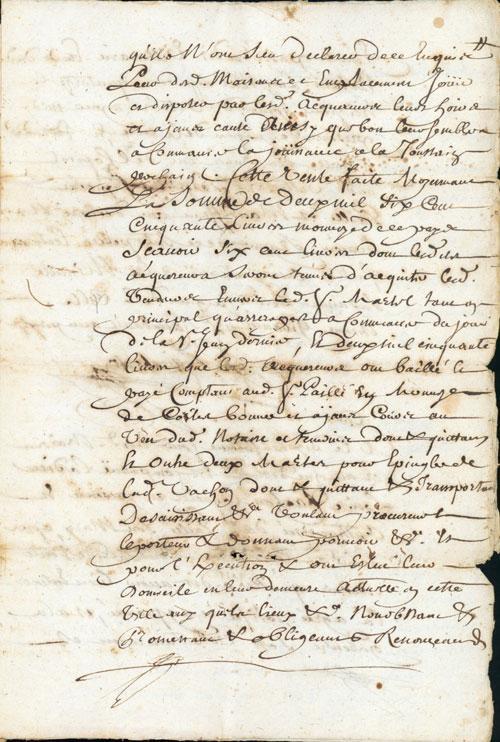 qu'ils N'ont Sceu Declarer de ce Enquis
Pour dud. Maison et Emplacement Jouir
et disposer par lesd. Acquereurs leurs hoirs
et ayans cause Ainsy que bon leur Semblera
a Commancer la jouissance a la Toussaint
prochain. Cette Vente faite Moyennant
La Somme de deux mil Six Cent
Cinquante Livres monnoye de ce pays
Scavoir Six cent livres dont lesdits
acquereurs seront tenus d'acquitter led.
Vendeur Envers led. Sr. Martel tant en
principal qu'arrerages a Commancer du jour
de la St. Jean derniere, Et deux mil cinquante
livres que lesd. Acquereurs ont baillé et
payé Comptant aud. Sr. Pailli En Monnoye
de Cartes bonne et ayant Cours au
Veu dud. Notaire et temoins dont quittance
Et Outre deux Martes pour Epingles de
lad. Vachon dont quittance & Transportant
Desaisissant & Voulant procureur
le porteur & donnant pouvoir & Et
pour l'Execution & ont Esleu leur
Domicile en leur demeure en cette
Ville auquels lieux & Nonobstant &
Promettant & obligeant & Renonceant &